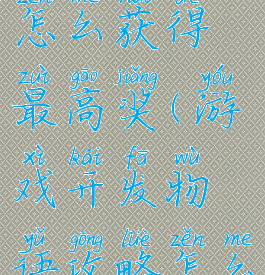 zěn me huò dé
怎么获得
zuì gāo jiǎng yóu
最高奖(游
xì kāi fā wù
戏开发物
yǔ gōng lüè zěn me
语攻略怎么